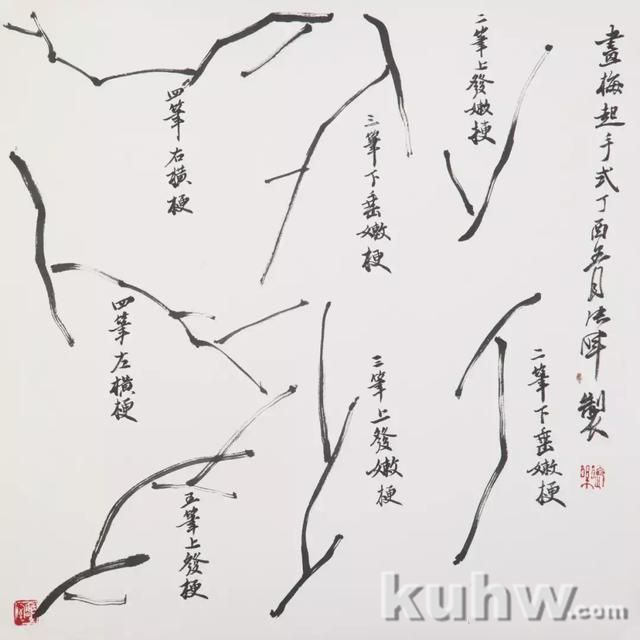 畫梅起手式丁酉年月製
二筆上發嫩梗
三筆下垂嫩梗
四筆右橫梗
二筆下垂嫩梗
三筆上發嫩梗
四筆左橫梗
五筆上發梗
kuhw.com